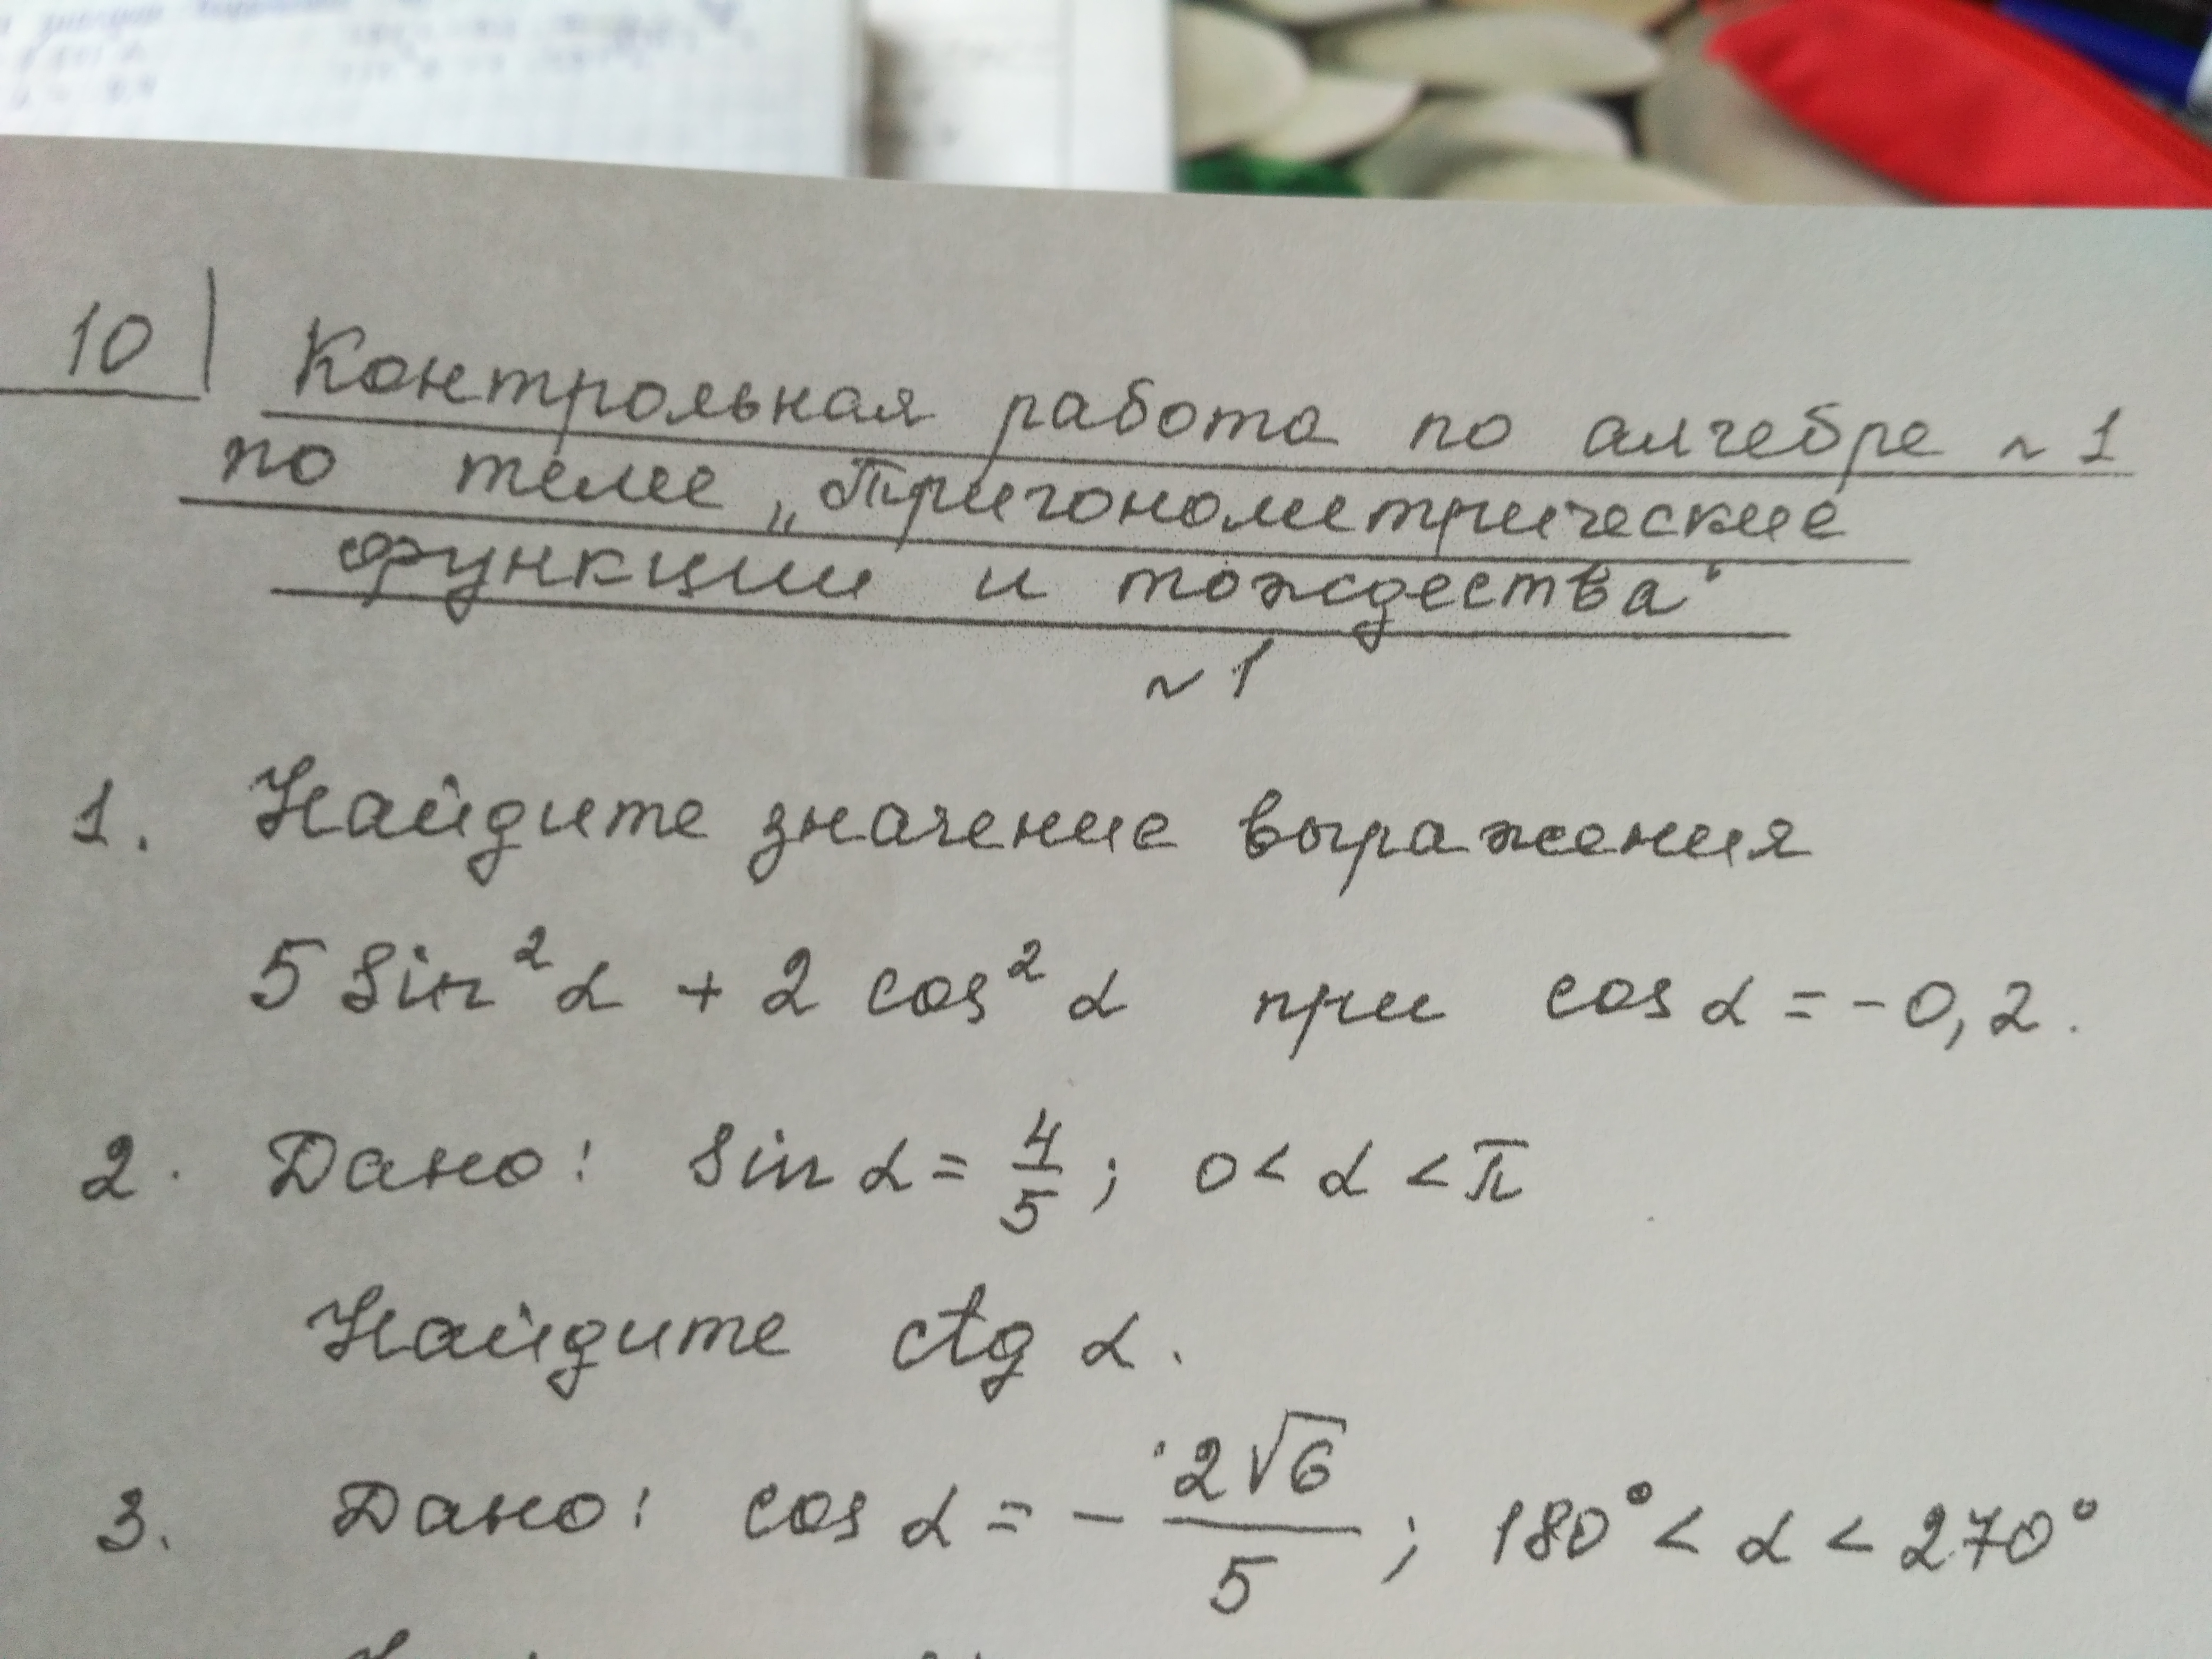 10
Контрольная работа по алгебре ~ 1
по теме „Тригонометрические
функции и тождества“
~ 1
1. Найдите значение выражения
5 sin² α + 2 cos² α при cos α = - 0,2.
2. Дано: sin α = 4/5; 0 < α < π
Найдите ctg α.
3. Дано: cos α = - 2√6/5; 180° < α < 270°